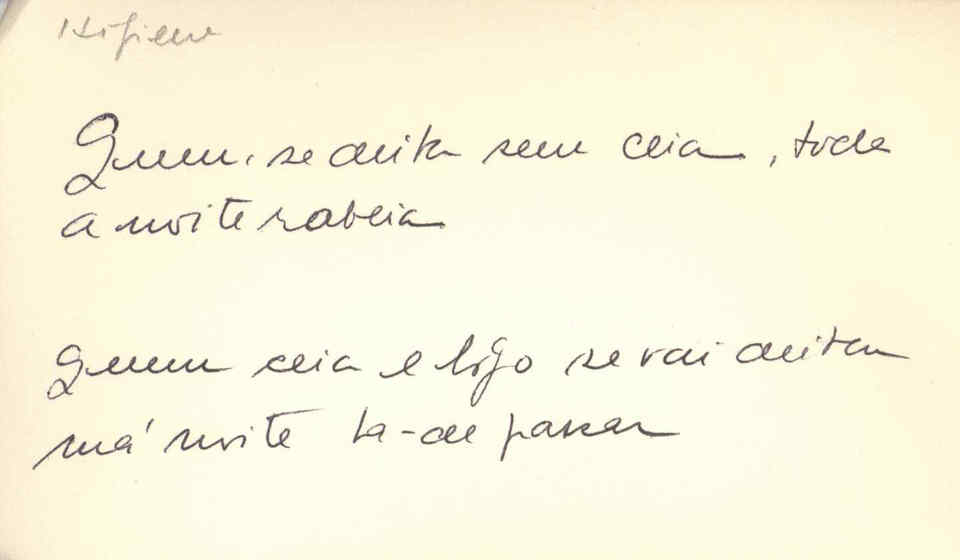 Higiene
Quem se deita sem ceia, toda
a noite rabeia
Quem ceia e logo se vai deitar
má noite ha-de passar